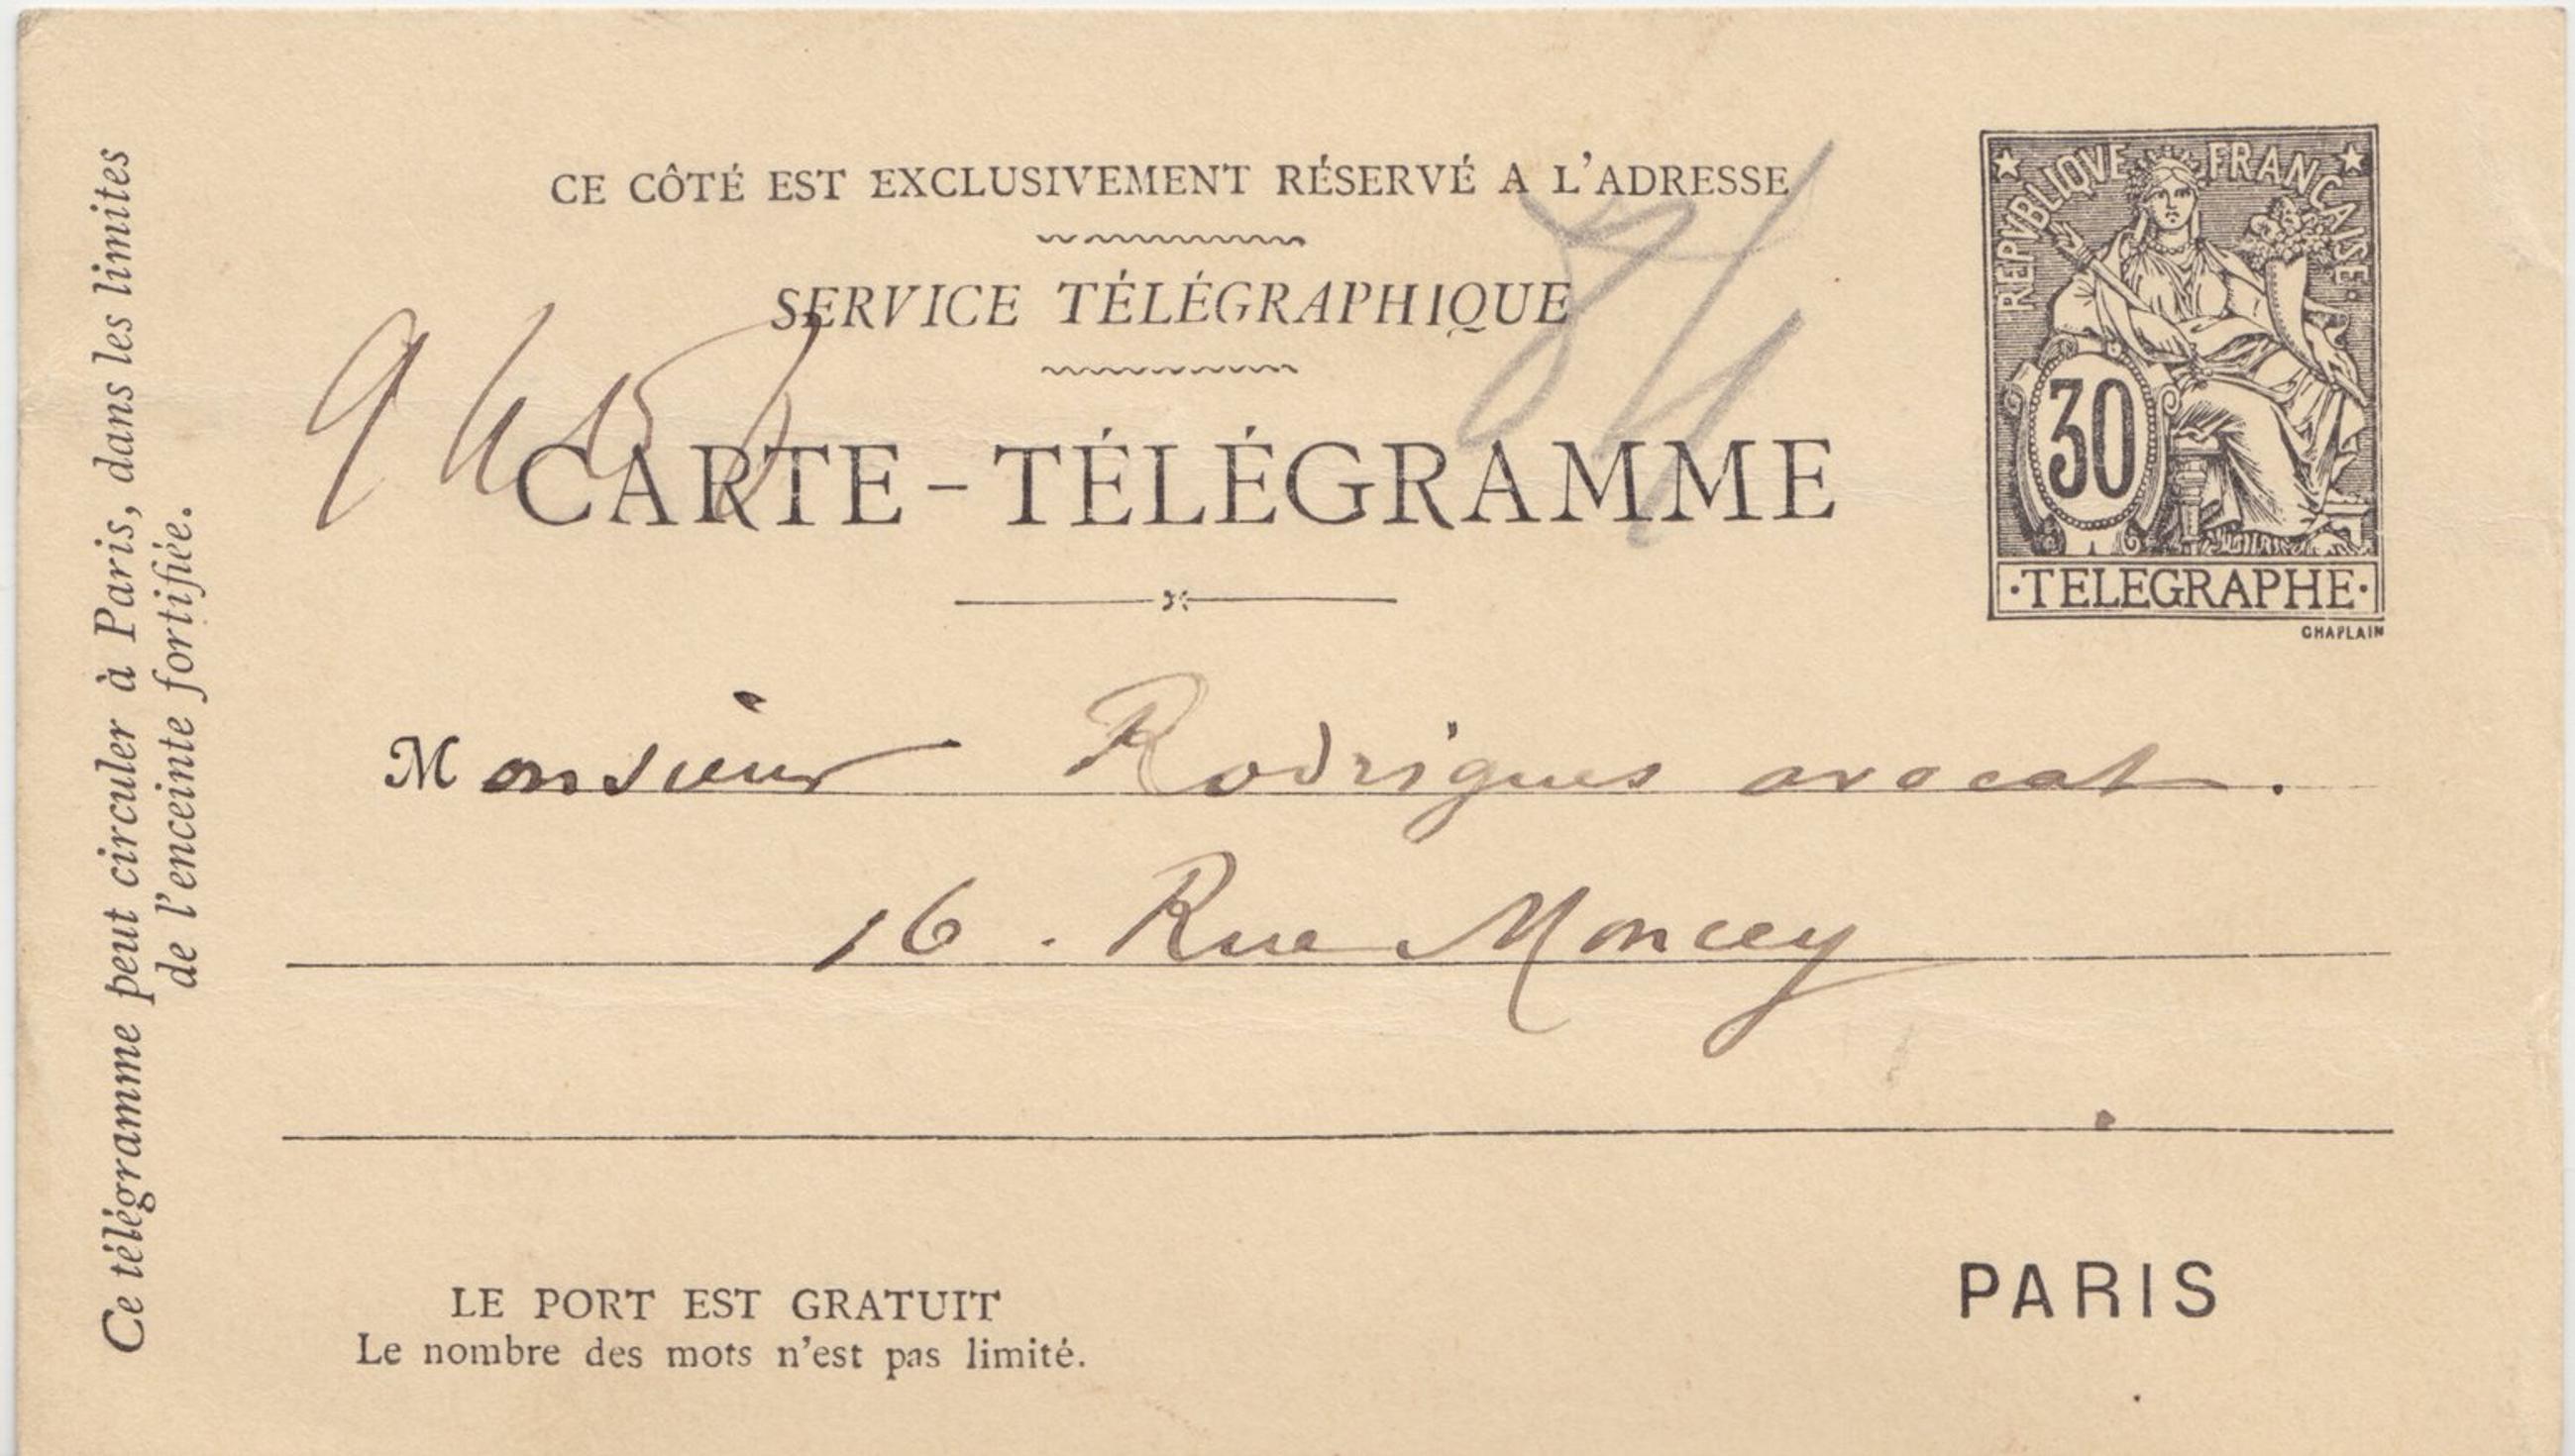 CE CÔTÉ EST EXCLUSIVEMENT RÉSERVÉ A L'ADRESSE
SERVICE TÉLÉGRAPHIQUE
CARTE-TÉLÉGRAMME
REPVBLIQVE FRANÇAISE
30
·TELEGRAPHE·
CHAPLAIN
Monsieur Rodrigues avocat.
16. Rue Moncey
PARIS
LE PORT EST GRATUIT
Le nombre des mots n'est pas limité.
Ce télégramme peut circuler à Paris, dans les limites
de l'enceinte fortifiée.